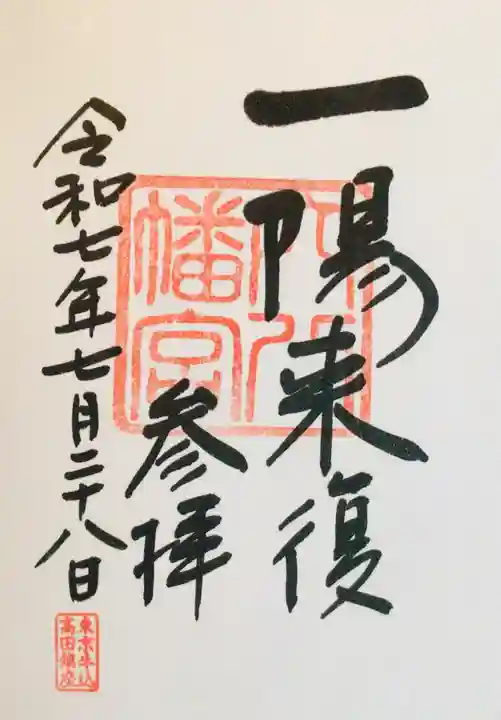 一陽来復
参拝
令和七年七月二十八日
八幡宮
東京牛込
高田鎮座